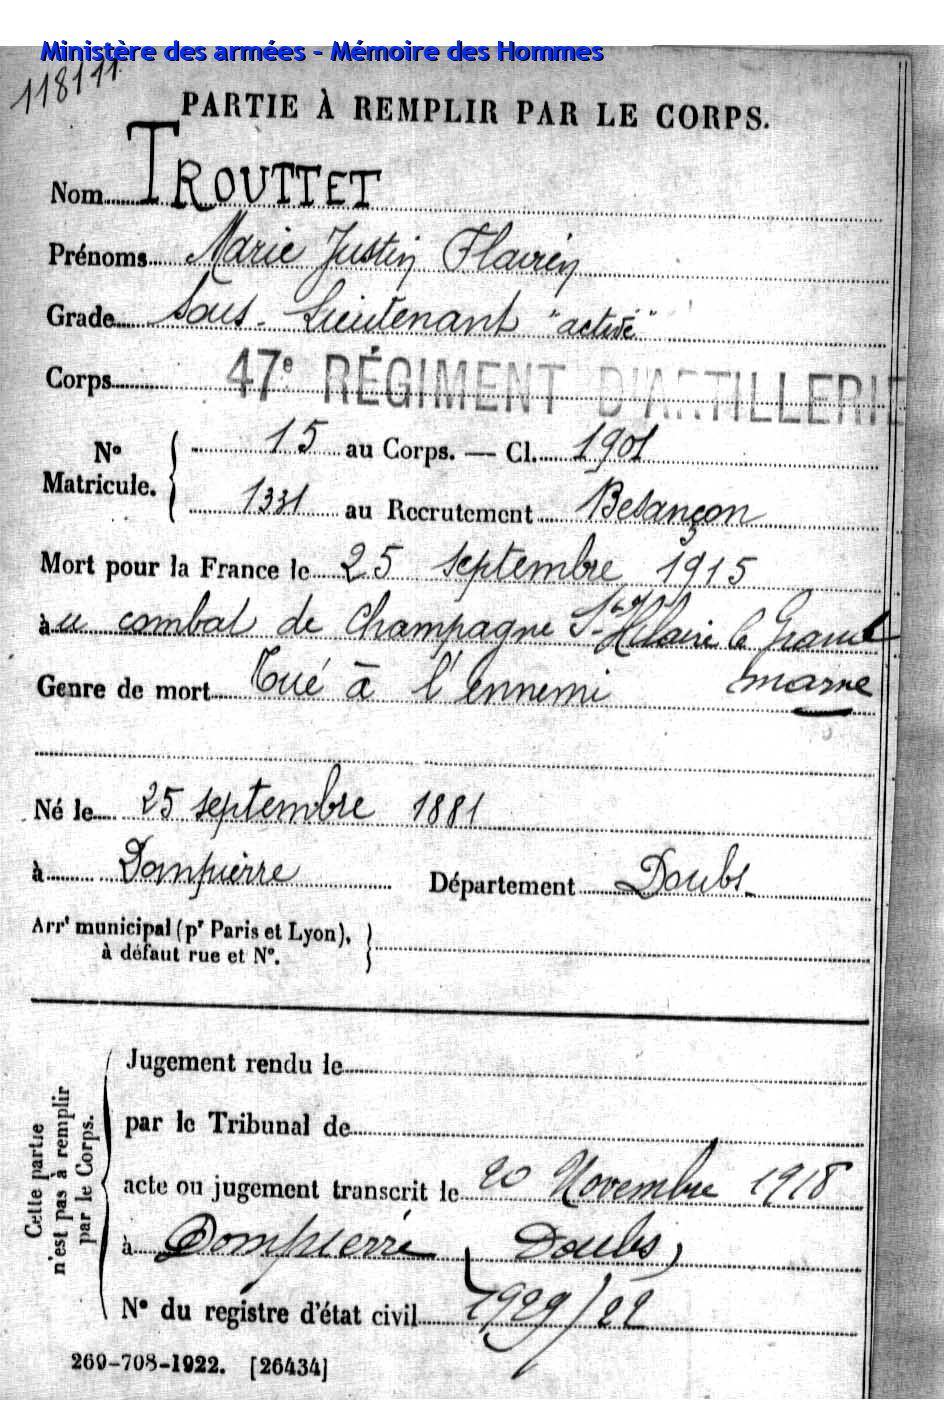 Ministère des armées - Mémoire des Hommes
118111
PARTIE À REMPLIR PAR LE CORPS.
Nom TROUTTET
Prénoms Marie Justin Flavien
Grade Sous-Lieutenant "active"
Corps 47e RÉGIMENT D'ARTILLERIE
No Matricule. { 15 au Corps. — Cl. 1901
1331 au Recrutement Besançon
Mort pour la France le 25 septembre 1915
à u combat de Champagne St-Hilaire le Grand
Genre de mort Tué à l'ennemi marne
Né le 25 septembre 1881
à Dompierre Département Doubs
Arrt municipal (pr Paris et Lyon), }
à défaut rue et No.
Cette partie n'est pas à remplir par le Corps.
Jugement rendu le
par le Tribunal de
acte ou jugement transcrit le 20 Novembre 1918
à Dompierre Doubs
No du registre d'état civil 1929/22
269-708-1922. [26434]